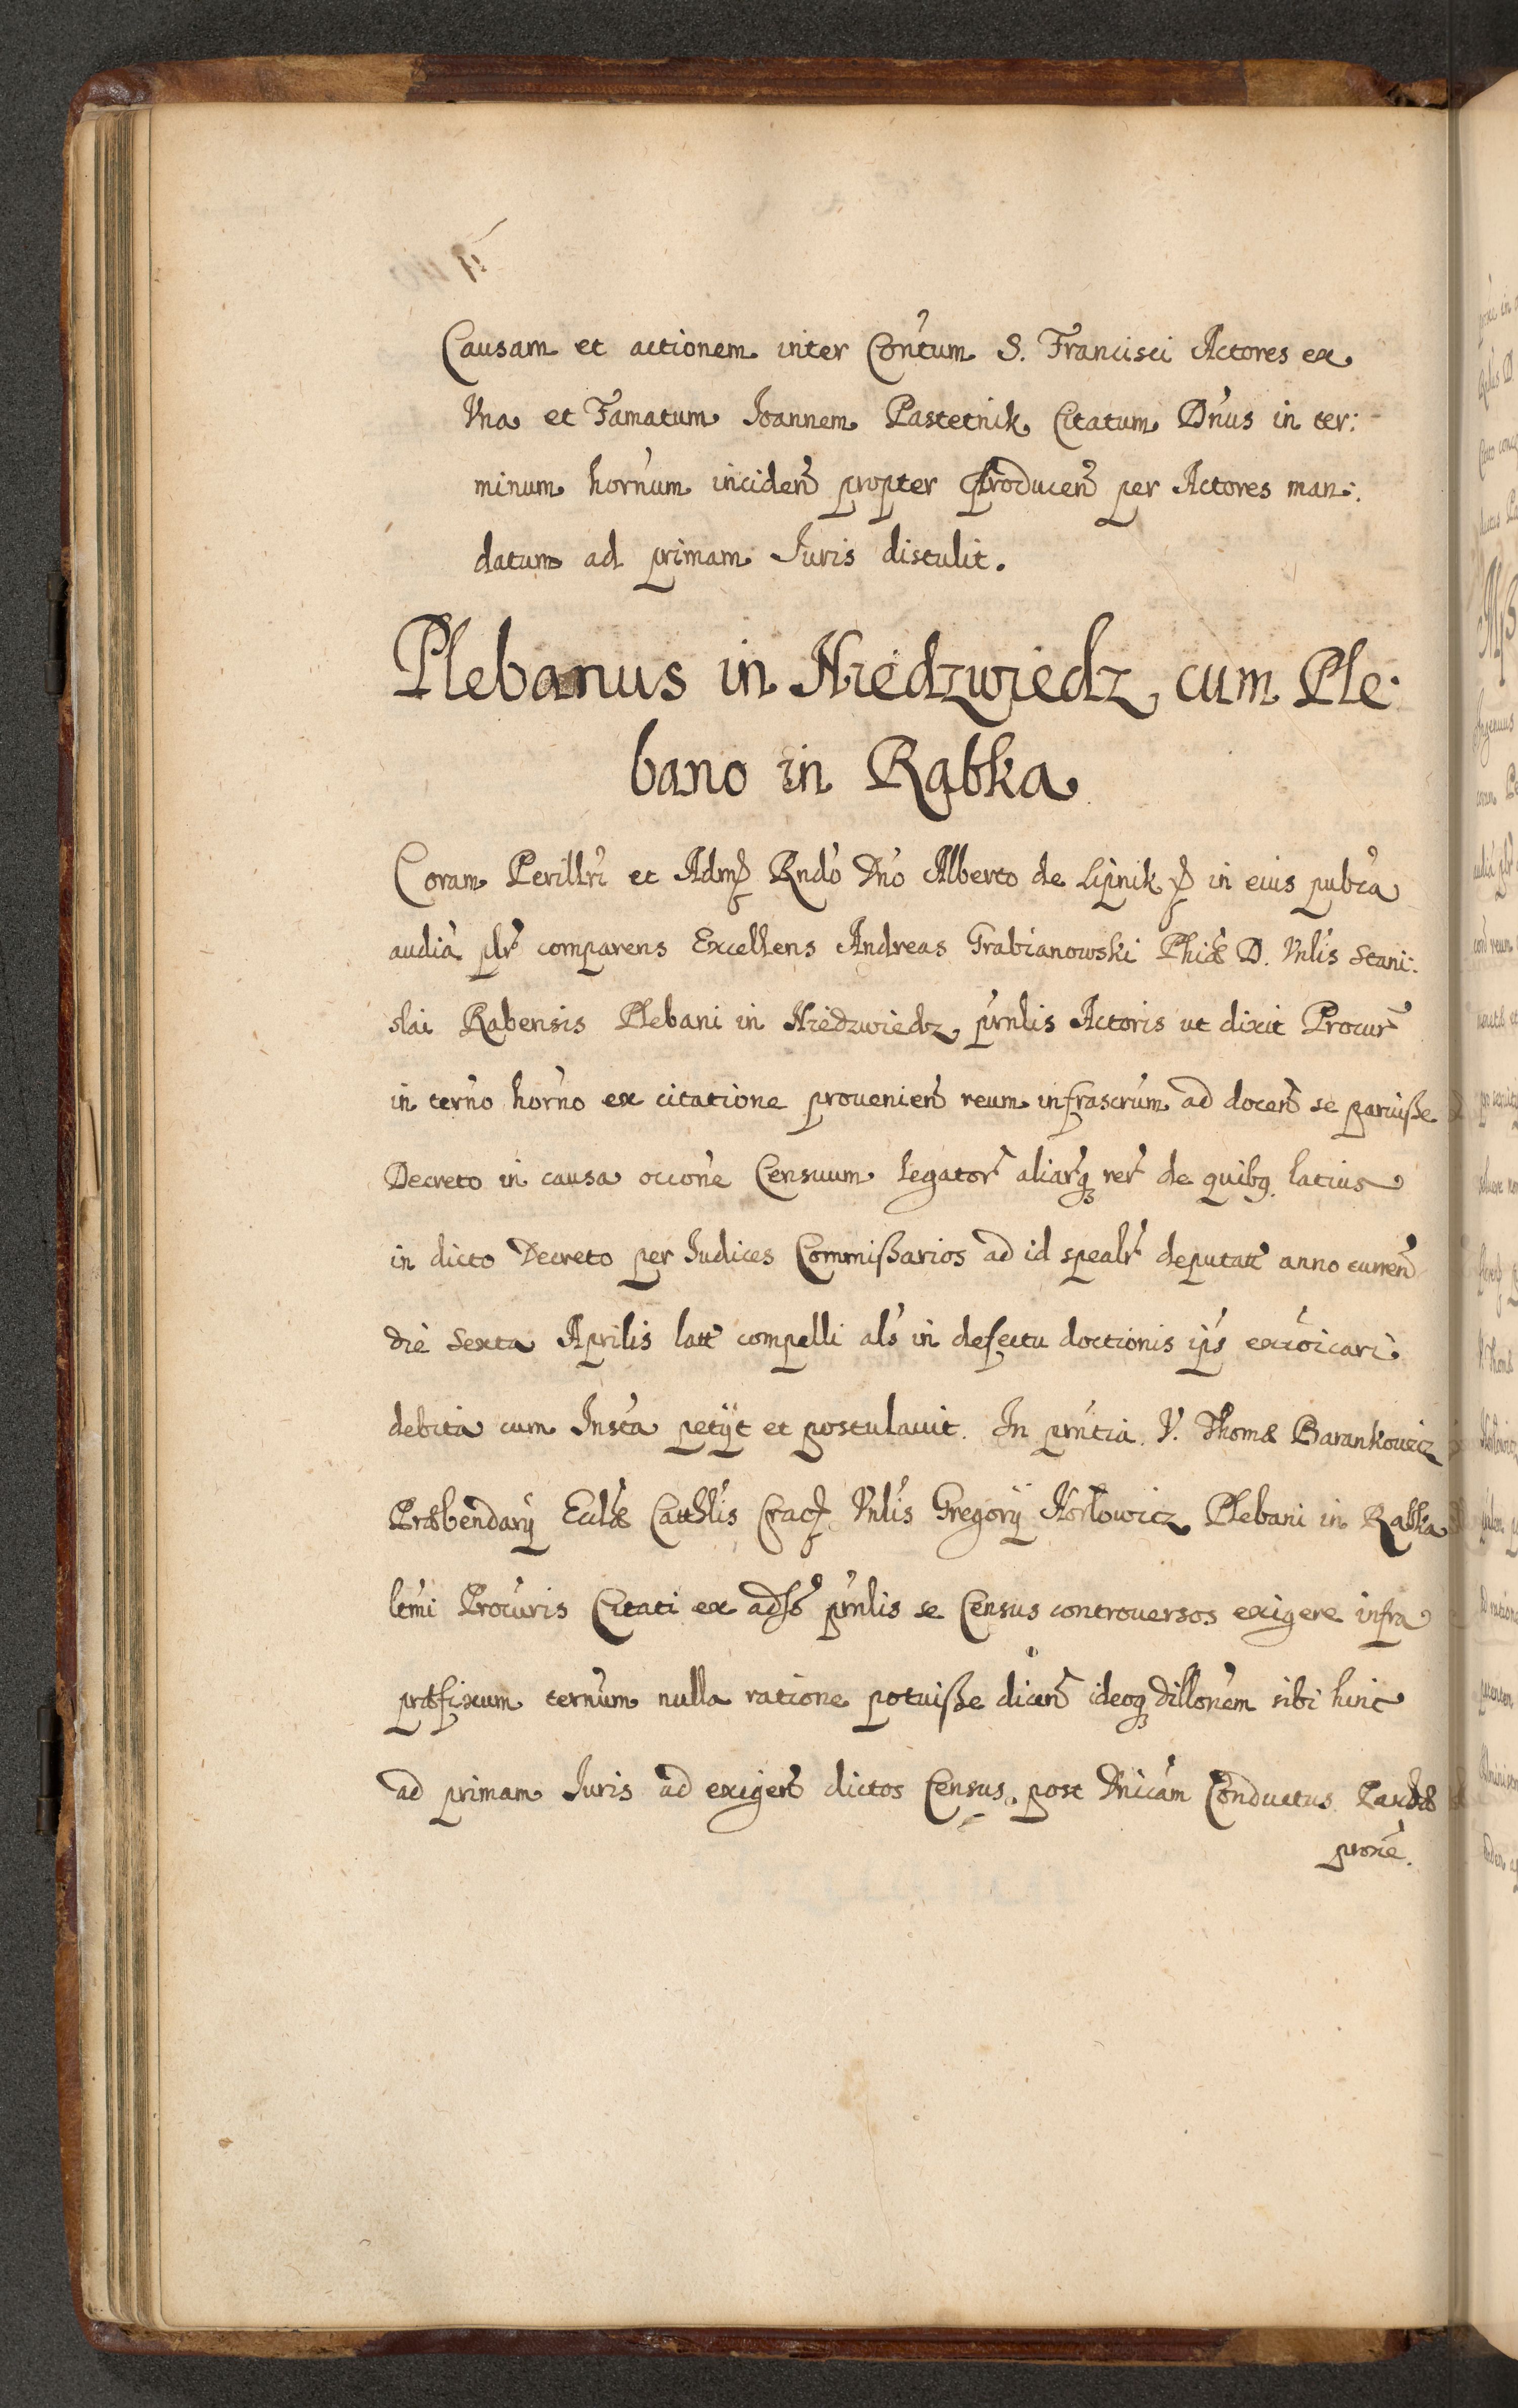 Causam et actionem inter Con'tum S. Francisci Actores ex
Vna et Famatum Joannem Pastetnik Citatum D'nus in ter:
minum hor'num inciden̄ propter Producen̄ per Actores man:
datum ad primam Juris distulit.
Plebanus in Niedzwiedz cum Ple:
bano in Rabka
Coram Perillri et Adm Rndo Dno Alberto de Lipnik in eius pub'ca
audia plr comparens Excellens Andreas Grabianowski Phiæ D. Vnlis Stani:
slai Rabensis Plebani in Niedzwiedz prnlis Actoris ut dixit Procur
in ter'no hor'no ex citatione prouenien̄ reum infrascrum ad docen̄ se paruisse
Decreto in causa occo'ne Censuum legator aliarq rer de quibq latius
in dicto Decreto per Judices Commissarios ad id spealr deputatt anno curren̄
die Sexta Aprilis latt compelli als in defectu doctionis ips excoicari
debita cum Insta petijt et postulauit. In prntia V. Thomæ Barankowicz
Præbendarij Eccl'æ Catthlis Crac Vnlis Gregorij Korlowicz Plebani in Rabka
ltmi Procuris Citati ex adso prnlis se Census controuersos exigere infra
præfixum ter'num nulla ratione potuisse dicen̄ ideoq dillo'nem sibi hinc
ad primam Juris ad exigen̄ dictos Census post Vnicam Conductus Paschæ
proxe.